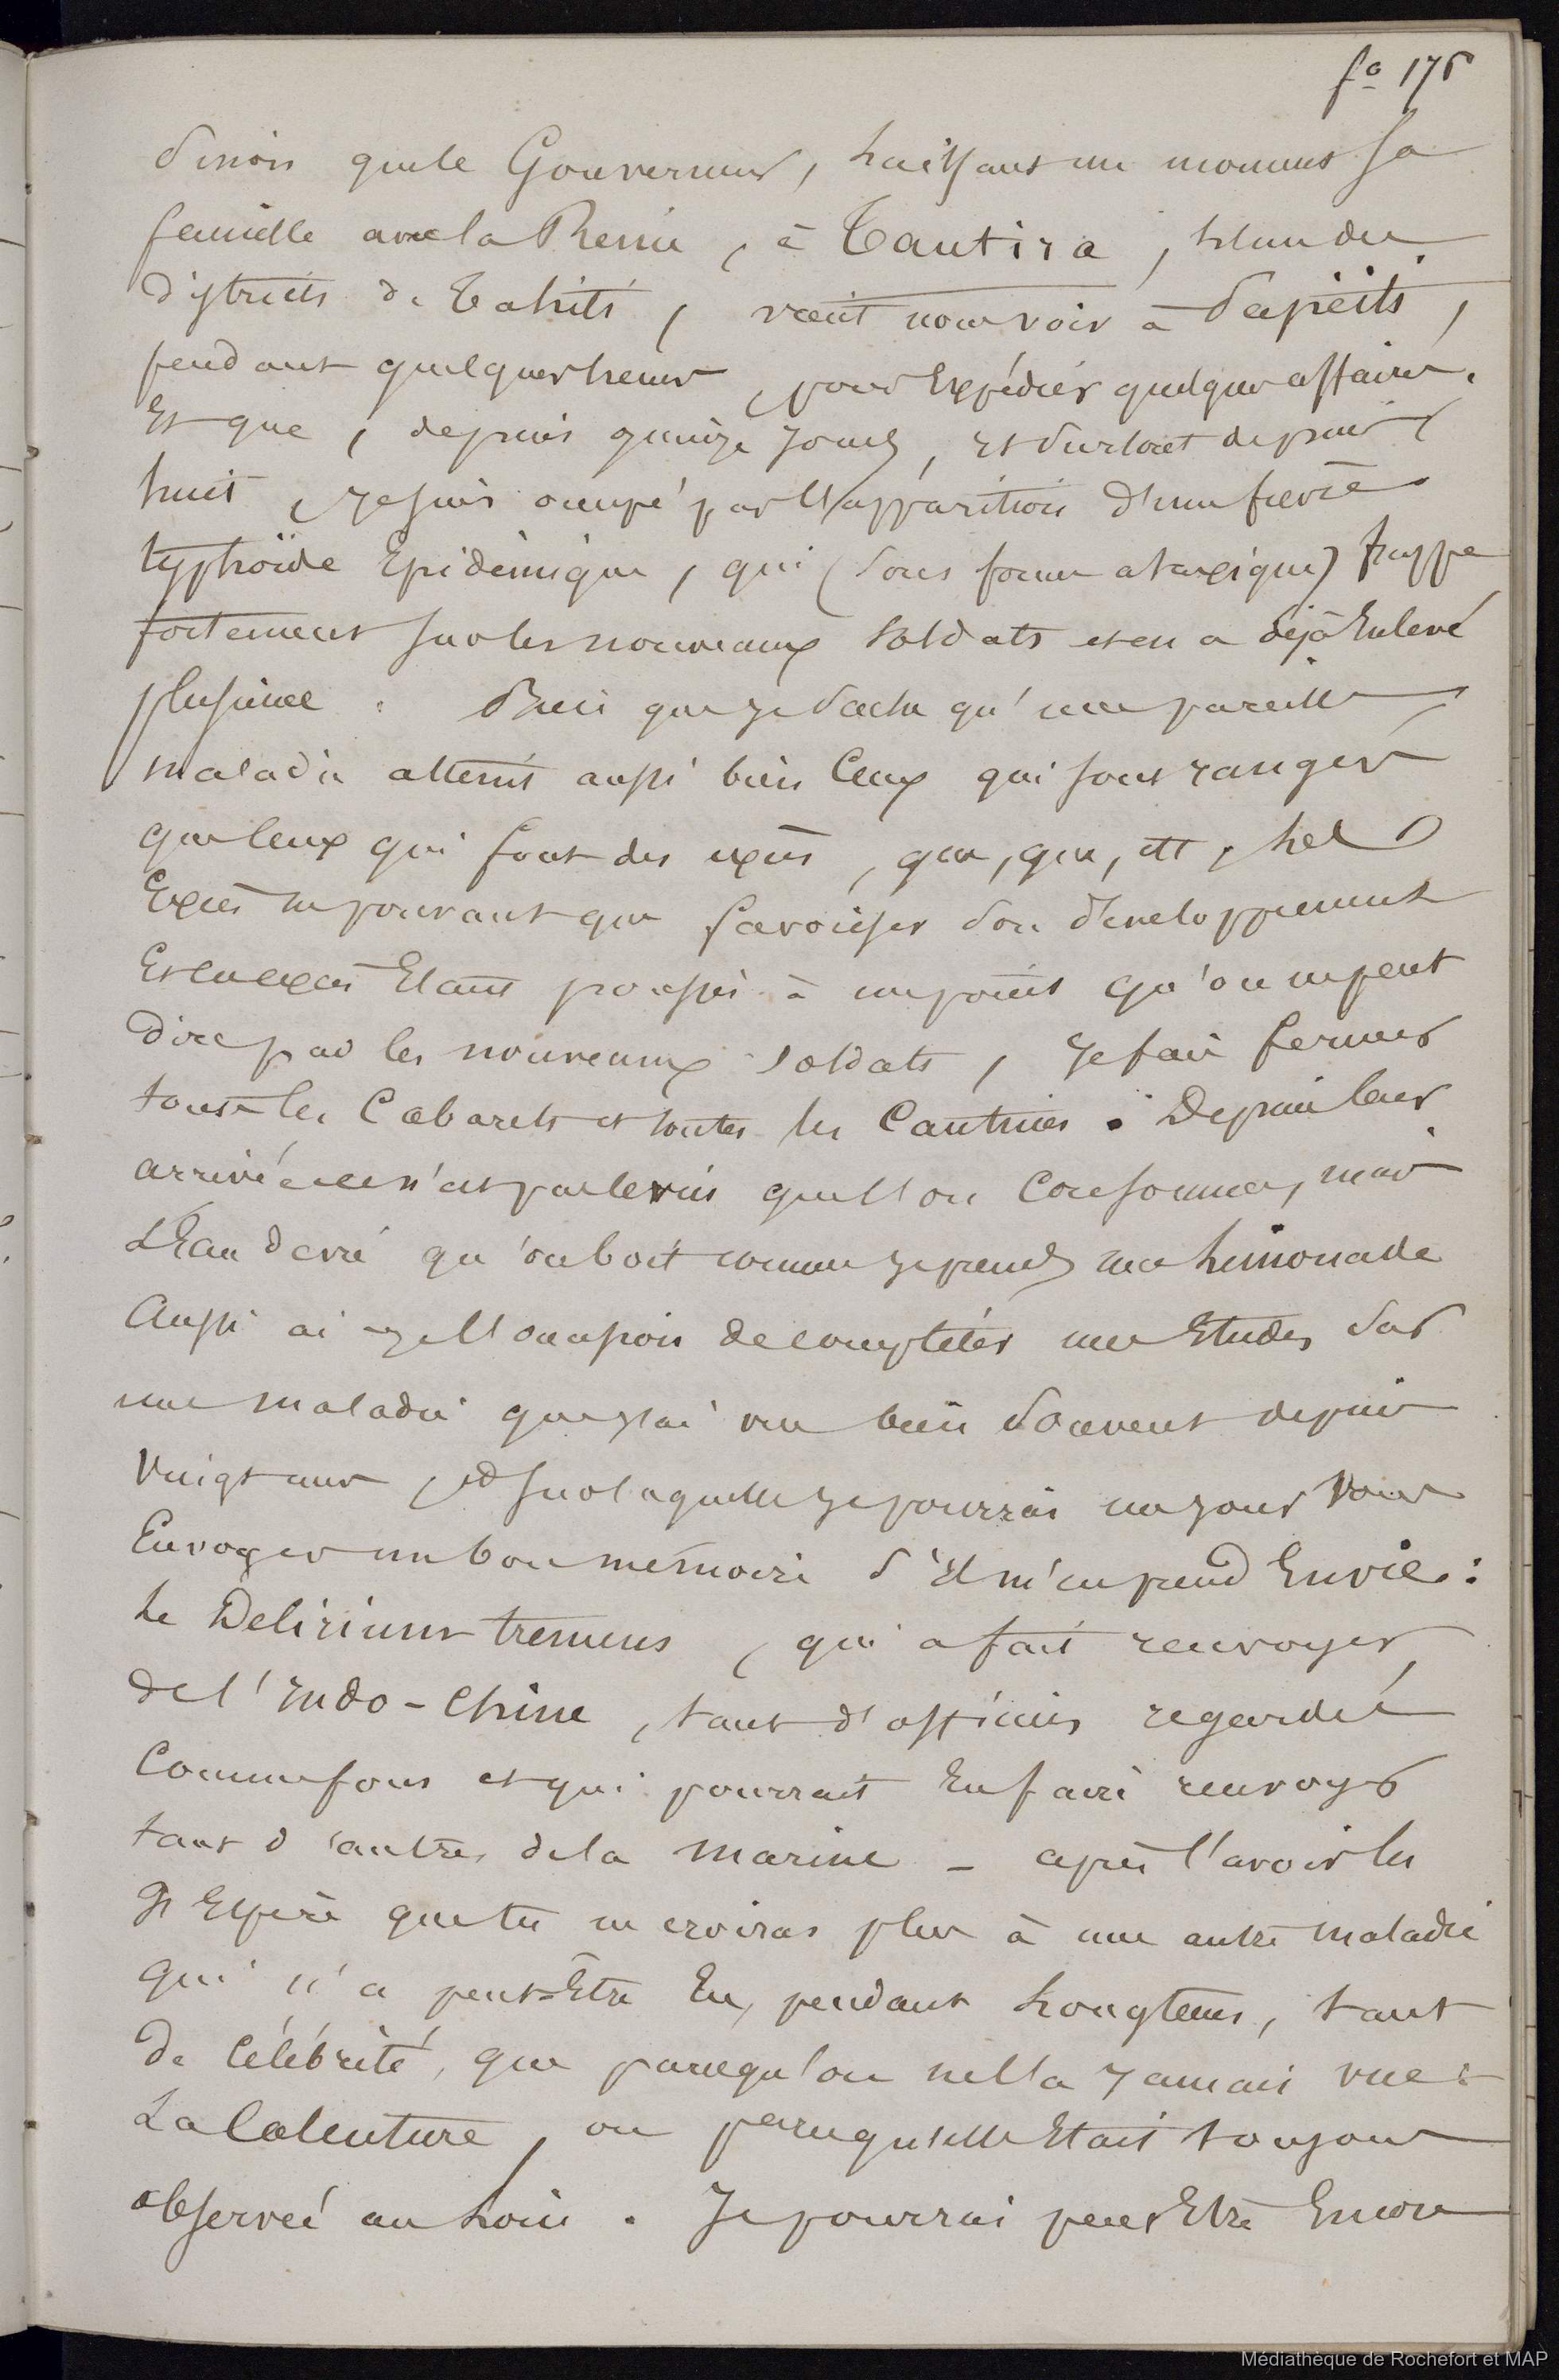 fo 176
Sinon que le Gouverneur, laissant un moment sa
famille avec la Reine, à Tautira, l'un des
districts de Tahiti, vient nous voir à Papéiti,
pendant quelques heures, pour Expédier quelques affaires.
Et que, depuis quinze jours, et surtout depuis
huit, je suis occupé par l'apparition d'une fievre
typhoïde Epidémique, qui (sous forme ataxique) frappe
fortement sur les nouveaux soldats et en a déjà Enlevé
plusieurs. Bien que je sache qu'une pareille
maladie atteint aussi bien Ceux qui sont rangés
que Ceux qui font des excès, que, que, ett, Les
Excès ne pouvant que favoriser son développement
Et ces excès Etant poussés à un point qu'on ne peut
dire par les nouveaux soldats, je fais fermer
tous les Cabarets et toutes les Cantines. Depuis leur
arrivée ce n'est pas le vin que l'on Consomme, mais
L'Eau de vie qu'on boit comme je prends ma Limonade
Aussi ai-je l'occasion de compléter mes Etudes sur
une maladie que j'ai vue bien souvent depuis
Vingt ans, et sur laquelle je pourrai un jour Vous
Envoyer un bon mémoire s'il m'en prend Envie :
Le Delirium tremens, qui a fait renvoyer,
de l'Indo-Chine, tant d'officiers regardés
Comme fous et qui pourrait En faire renvoyer
tant d'autres de la marine - après l'avoir lu
J'Espère que tu ne croiras plus à une autre maladie
qui n'a peut-Être Eu, pendant Longtems, tant
de Célébrité, que parcequ'on ne l'a jamais vue :
La Calenture, ou parcequ'elle Etait toujours
observée au Loin. Je pourrai peut Etre Encore
Médiathèque de Rochefort et MAP